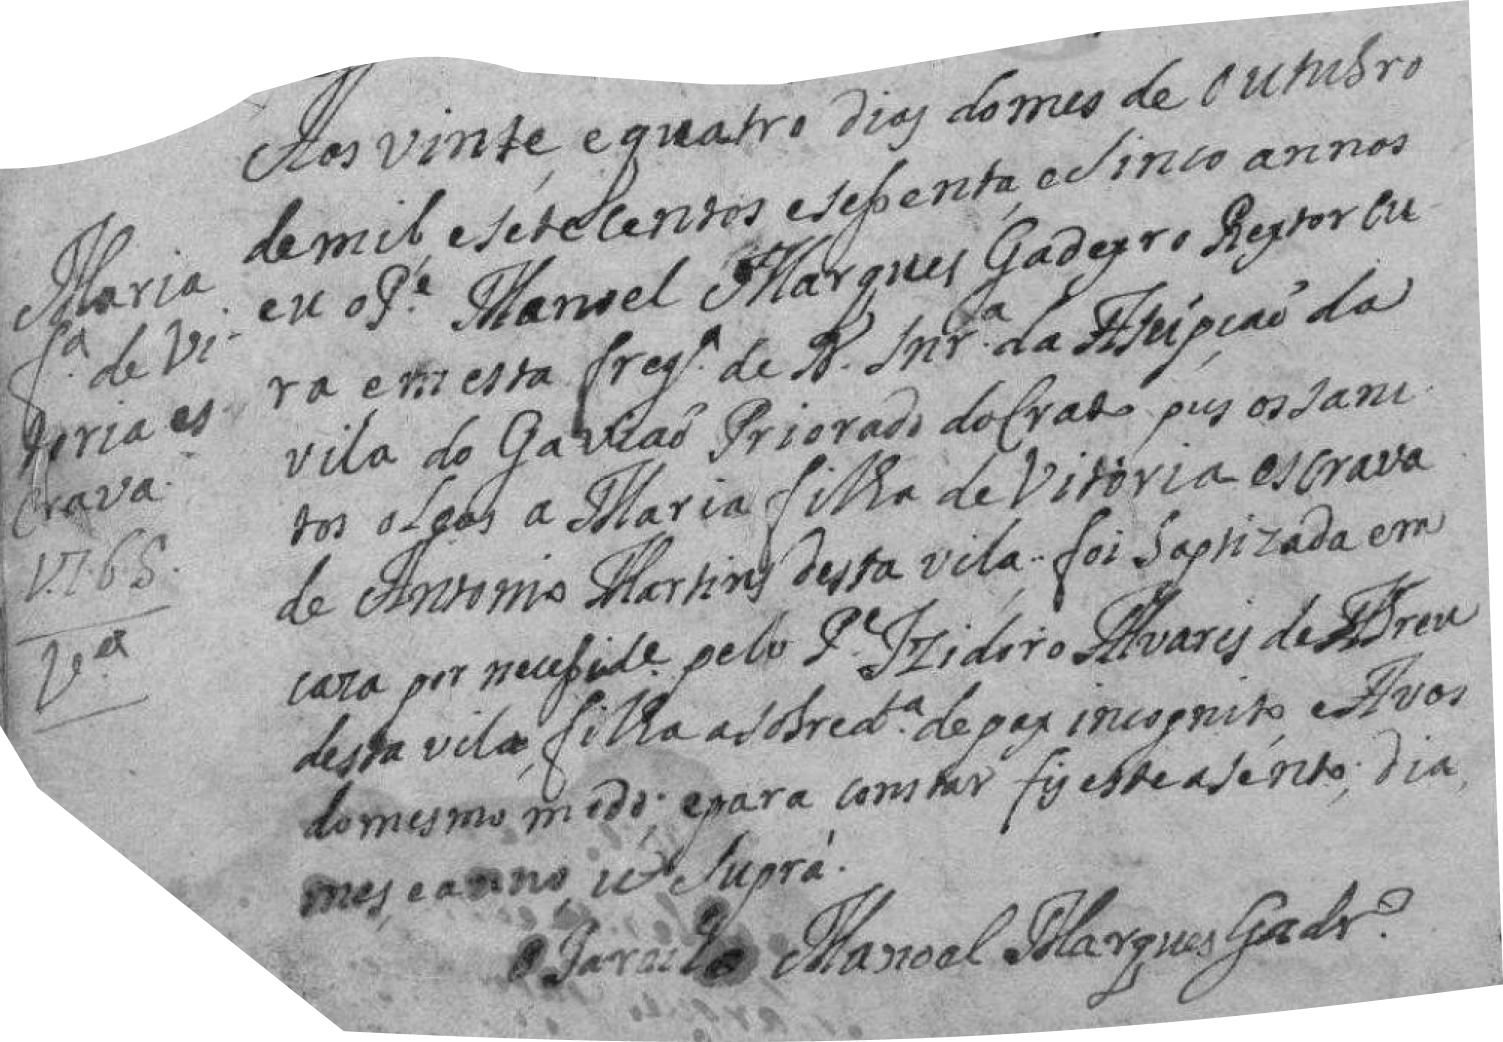 Maria
f.ª de Vi-
toria es
crava.
1765.
V.ª
Aos vinte, e quatro dias do mes de outubro
de mil, e sete centos e seßenta, e sinco annos
eu o P.e Manoel Marques Gadeyro Reytor Cu
ra em esta freg.ª de N. Snr.ª da Asúpcaõ da
vila do Gaviaõ Priorado do Crato pus os san
tos oleos a Maria filha de Vitoria escrava
de Antonio Martins desta vila. foi baptizada em
caza por neceßid.e pelo P.e Izidoro Alvares de Abreu
desta vila, filha a sobred.ta de pay incognito, e Avos
do mesmo modo; e para constar fis este asento; dia,
mes, e anno, ut Supra.
O Parocho Manoel Marques Gadr.o